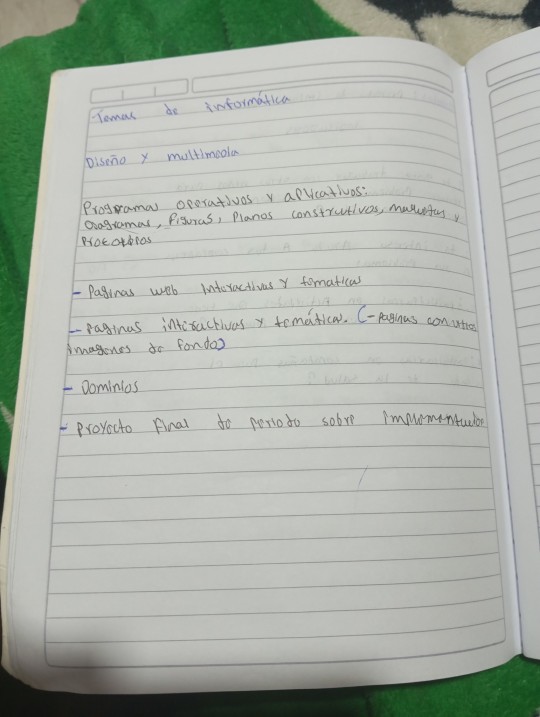 -Temas de Informática
Diseño y multimedia
Programas operativos y aplicativos:
Diagramas, Figuras, Planos constructivos, maquetas y
Prototipos
- Paginas web Interactivas y tematicas
- Paginas interactivas y temáticas. (-Paginas con
imagenes de fondo)
- Dominios
- Proyecto Final de periodo sobre